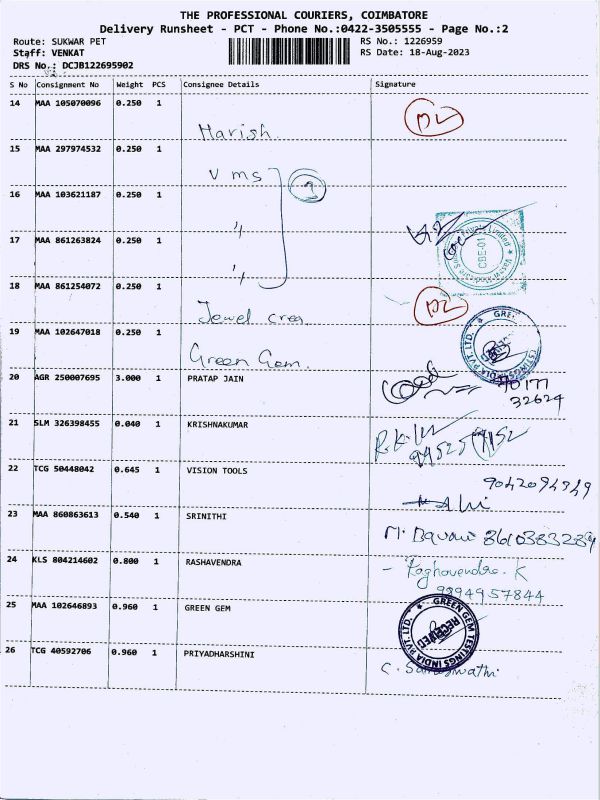 THE PROFESSIONAL COURIERS, COIMBATORE
Delivery Runsheet - PCT - Phone No.:0422-3505555 - Page No.:2
Route: SUKWAR PET RS No.: 1226959
Staff: VENKAT RS Date: 18-Aug-2023
DRS No.: DCJB122695902
S No Consignment No Weight PCS Consignee Details Signature
14 MAA 105070096 0.250 1
Harish
15 MAA 297974532 0.250 1
V ms
16 MAA 103621187 0.250 1
"
17 MAA 861263824 0.250 1
CBE-01
"
18 MAA 861254072 0.250 1
Jewel crea
19 MAA 102647018 0.250 1
Green Gem.
20 AGR 250007695 3.000 1 PRATAP JAIN
32624
21 SLM 326398455 0.040 1 KRISHNAKUMAR
22 TCG 50448042 0.645 1 VISION TOOLS
23 MAA 860863613 0.540 1 SRINITHI
24 KLS 804214602 0.800 1 RASHAVENDRA
Raghavendra. K
9994957844
25 MAA 102646893 0.960 1 GREEN GEM
GREEN GEM TESTINGS INDIA PVT. LTD.
RECEIVED
26 TCG 40592706 0.960 1 PRIYADHARSHINI